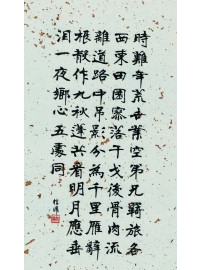 時難年荒世業空弟兄羈旅各
西東田園寥落干戈後骨肉流
離道路中吊影分為千里雁辭
根散作九秋蓬共看明月應垂
泪一夜鄉心五處同